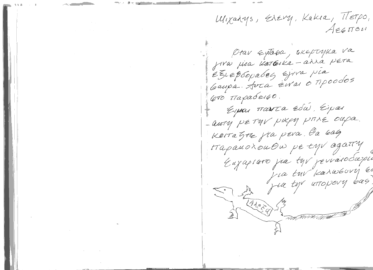 Μιχάλης, Ελένη, Κάκια, Πέτρο,
Δέσποι
Όταν έφθασα, σκέφτηκα να
γίνω μία κατσίκα – αλλά μετά
εξι εβδομάδες έγινα μία
σαύρα. Αυτά είναι ο πρόοδος
στο παράδεισο.
Είμαι πάντα εδώ. Είμαι
αυτή με την μικρή μπλε ουρά.
κοιτάξτε για μένα. Θα σας
παρακολουθώ με την αγάπη
Ευχαριστώ για την γενναιοδωρία
για την καλοσύνη σα
για την υπομονή σας